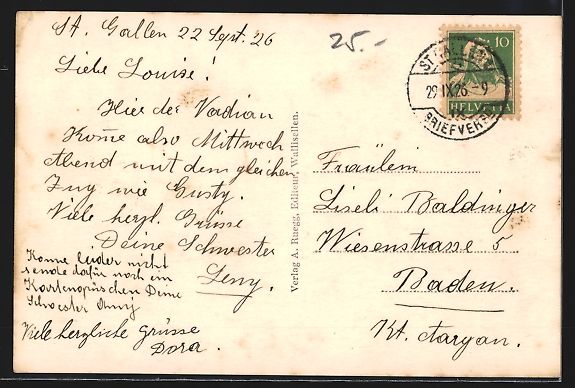 St. Gallen 22 Sept. 26
25.-
Liebe Louise!
Hier der Vadian
Kom̄e also Mittwoch
Abend mit dem gleichen
Zug wie Gusty.
Viele herzl. Grüsse
Deine Schwester
Leny.
Kom̄e leider nicht
sende dafür noch ein
Kartengrüsschen Deine
Schwester
Viele herzliche Grüsse
Dora.
Verlag A. Ruegg, Editeur, Wallisellen.
10
HELVETIA
ST. GALLEN
22 IX 26 - 9
BRIEFVERS
Fräulein
Liseli Baldinger
Wiesenstrasse 5
Baden.
Kt. Aargau.